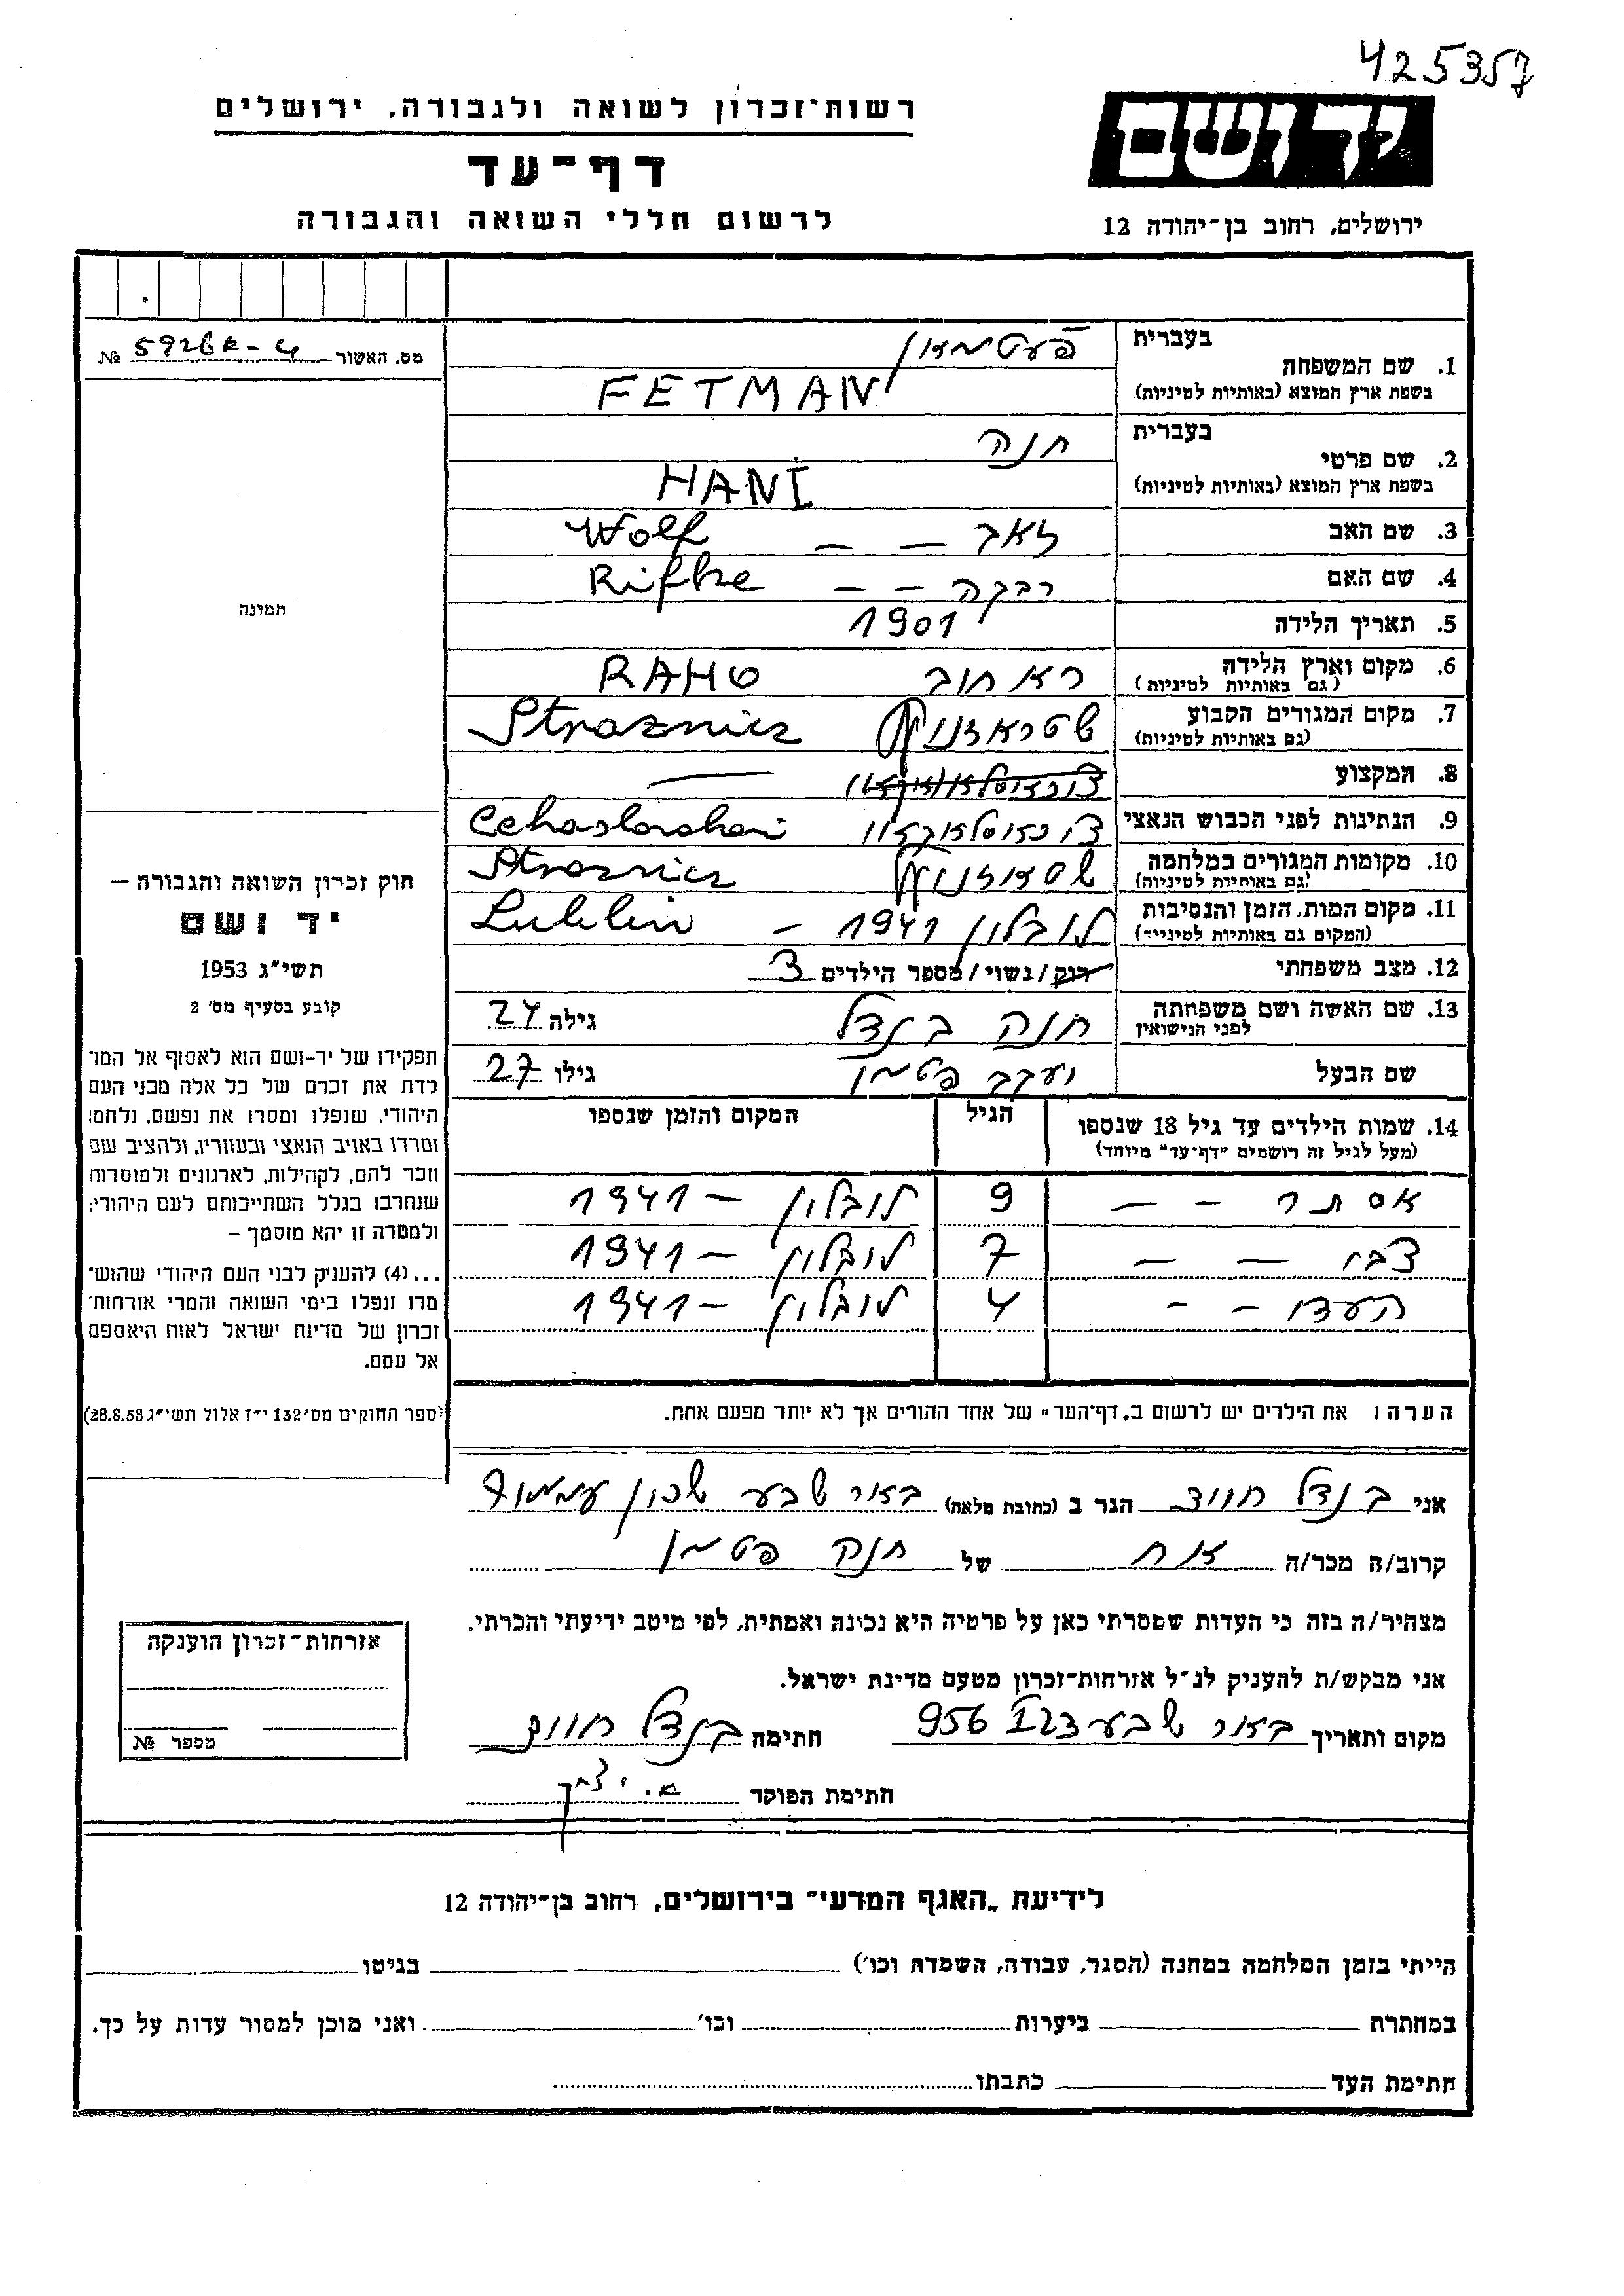 425357
רשות־זכרון לשואה ולגבורה, ירושלים
יד ושם
דף־עד
לרשום חללי השואה והגבורה
ירושלים, רחוב בן־יהודה 12
מס. האשור № 5926
בעברית
פעטמאן
1. שם המשפחה
בשפת ארץ המוצא (באותיות לטיניות)
FETMAN
בעברית
חנה
2. שם פרטי
בשפת ארץ המוצא (באותיות לטיניות)
HANI
3. שם האב זאב – – Wolf
4. שם האם רבקה – – Rifke
5. תאריך הלידה 1901
6. מקום וארץ הלידה ראחוב RAHO
(גם באותיות לטיניות)
7. מקום המגורים הקבוע Stroznicz
(גם באותיות לטיניות)
8. המקצוע
9. הנתינות לפני הכבוש הנאצי
10. מקומות המגורים במלחמה Stroznicz
(גם באותיות לטיניות)
11. מקום המות, הזמן והנסיבות לובלין 1941 – Lublin
(המקום גם באותיות לטיניות)
12. מצב משפחתי רוק/נשוי/מספר הילדים 3
13. שם האשה ושם משפחתה לפני הנישואין חנה בנדל גילה 24
שם הבעל יעקב פטמן גילו 27
14. שמות הילדים עד גיל 18 שנספו הגיל המקום והזמן שנספו
(מעל לגיל זה רושמים "דף־עד" מיוחד)
אסתר – – 9 לובלין – 1941
צבי – – 7 לובלין – 1941
– – 4 לובלין – 1941
הערה: את הילדים יש לרשום ב„דף־העד" של אחד ההורים אך לא יותר מפעם אחת.
תמונה
חוק זכרון השואה והגבורה –
יד ושם
תשי"ג 1953
קובע בסעיף מס׳ 2
תפקידו של יד-ושם הוא לאסוף אל המו־
לדת את זכרם של כל אלה מבני העם
היהודי, שנפלו ומסרו את נפשם, נלחמו
ומרדו באויב הנאצי ובעוזריו, ולהציב שם
וזכר להם, לקהילות, לארגונים ולמוסדות
שנחרבו בגלל השתייכותם לעם היהודי;
ולמטרה זו יהא מוסמך –
...(4) להעניק לבני העם היהודי שהוש־
מדו ונפלו בימי השואה והמרי אזרחות־
זכרון של מדינת ישראל לאות היאספם
אל עמם.
(ספר החוקים מס׳ 132 י"ז אלול תשי"ג 28.8.53)
אני בנדל הגר ב (כתובת מלאה) באר שבע שכון
קרוב/ה מכר/ה אח של חנה פטמן
מצהיר/ה בזה כי העדות שמסרתי כאן על פרטיה היא נכונה ואמתית, לפי מיטב ידיעתי והכרתי.
אני מבקש/ת להעניק לנ"ל אזרחות־זכרון מטעם מדינת ישראל.
מקום ותאריך באר שבע 23 I 956 חתימה בנדל
חתימת הפוקד
אזרחות־זכרון הוענקה
מספר №
לידיעת „האגף המדעי" בירושלים, רחוב בן־יהודה 12
הייתי בזמן המלחמה במחנה (הסגר, עבודה, השמדה וכו׳) בגיטו
במחתרת ביערות וכו׳ ואני מוכן למסור עדות על כך.
חתימת העד כתבתו